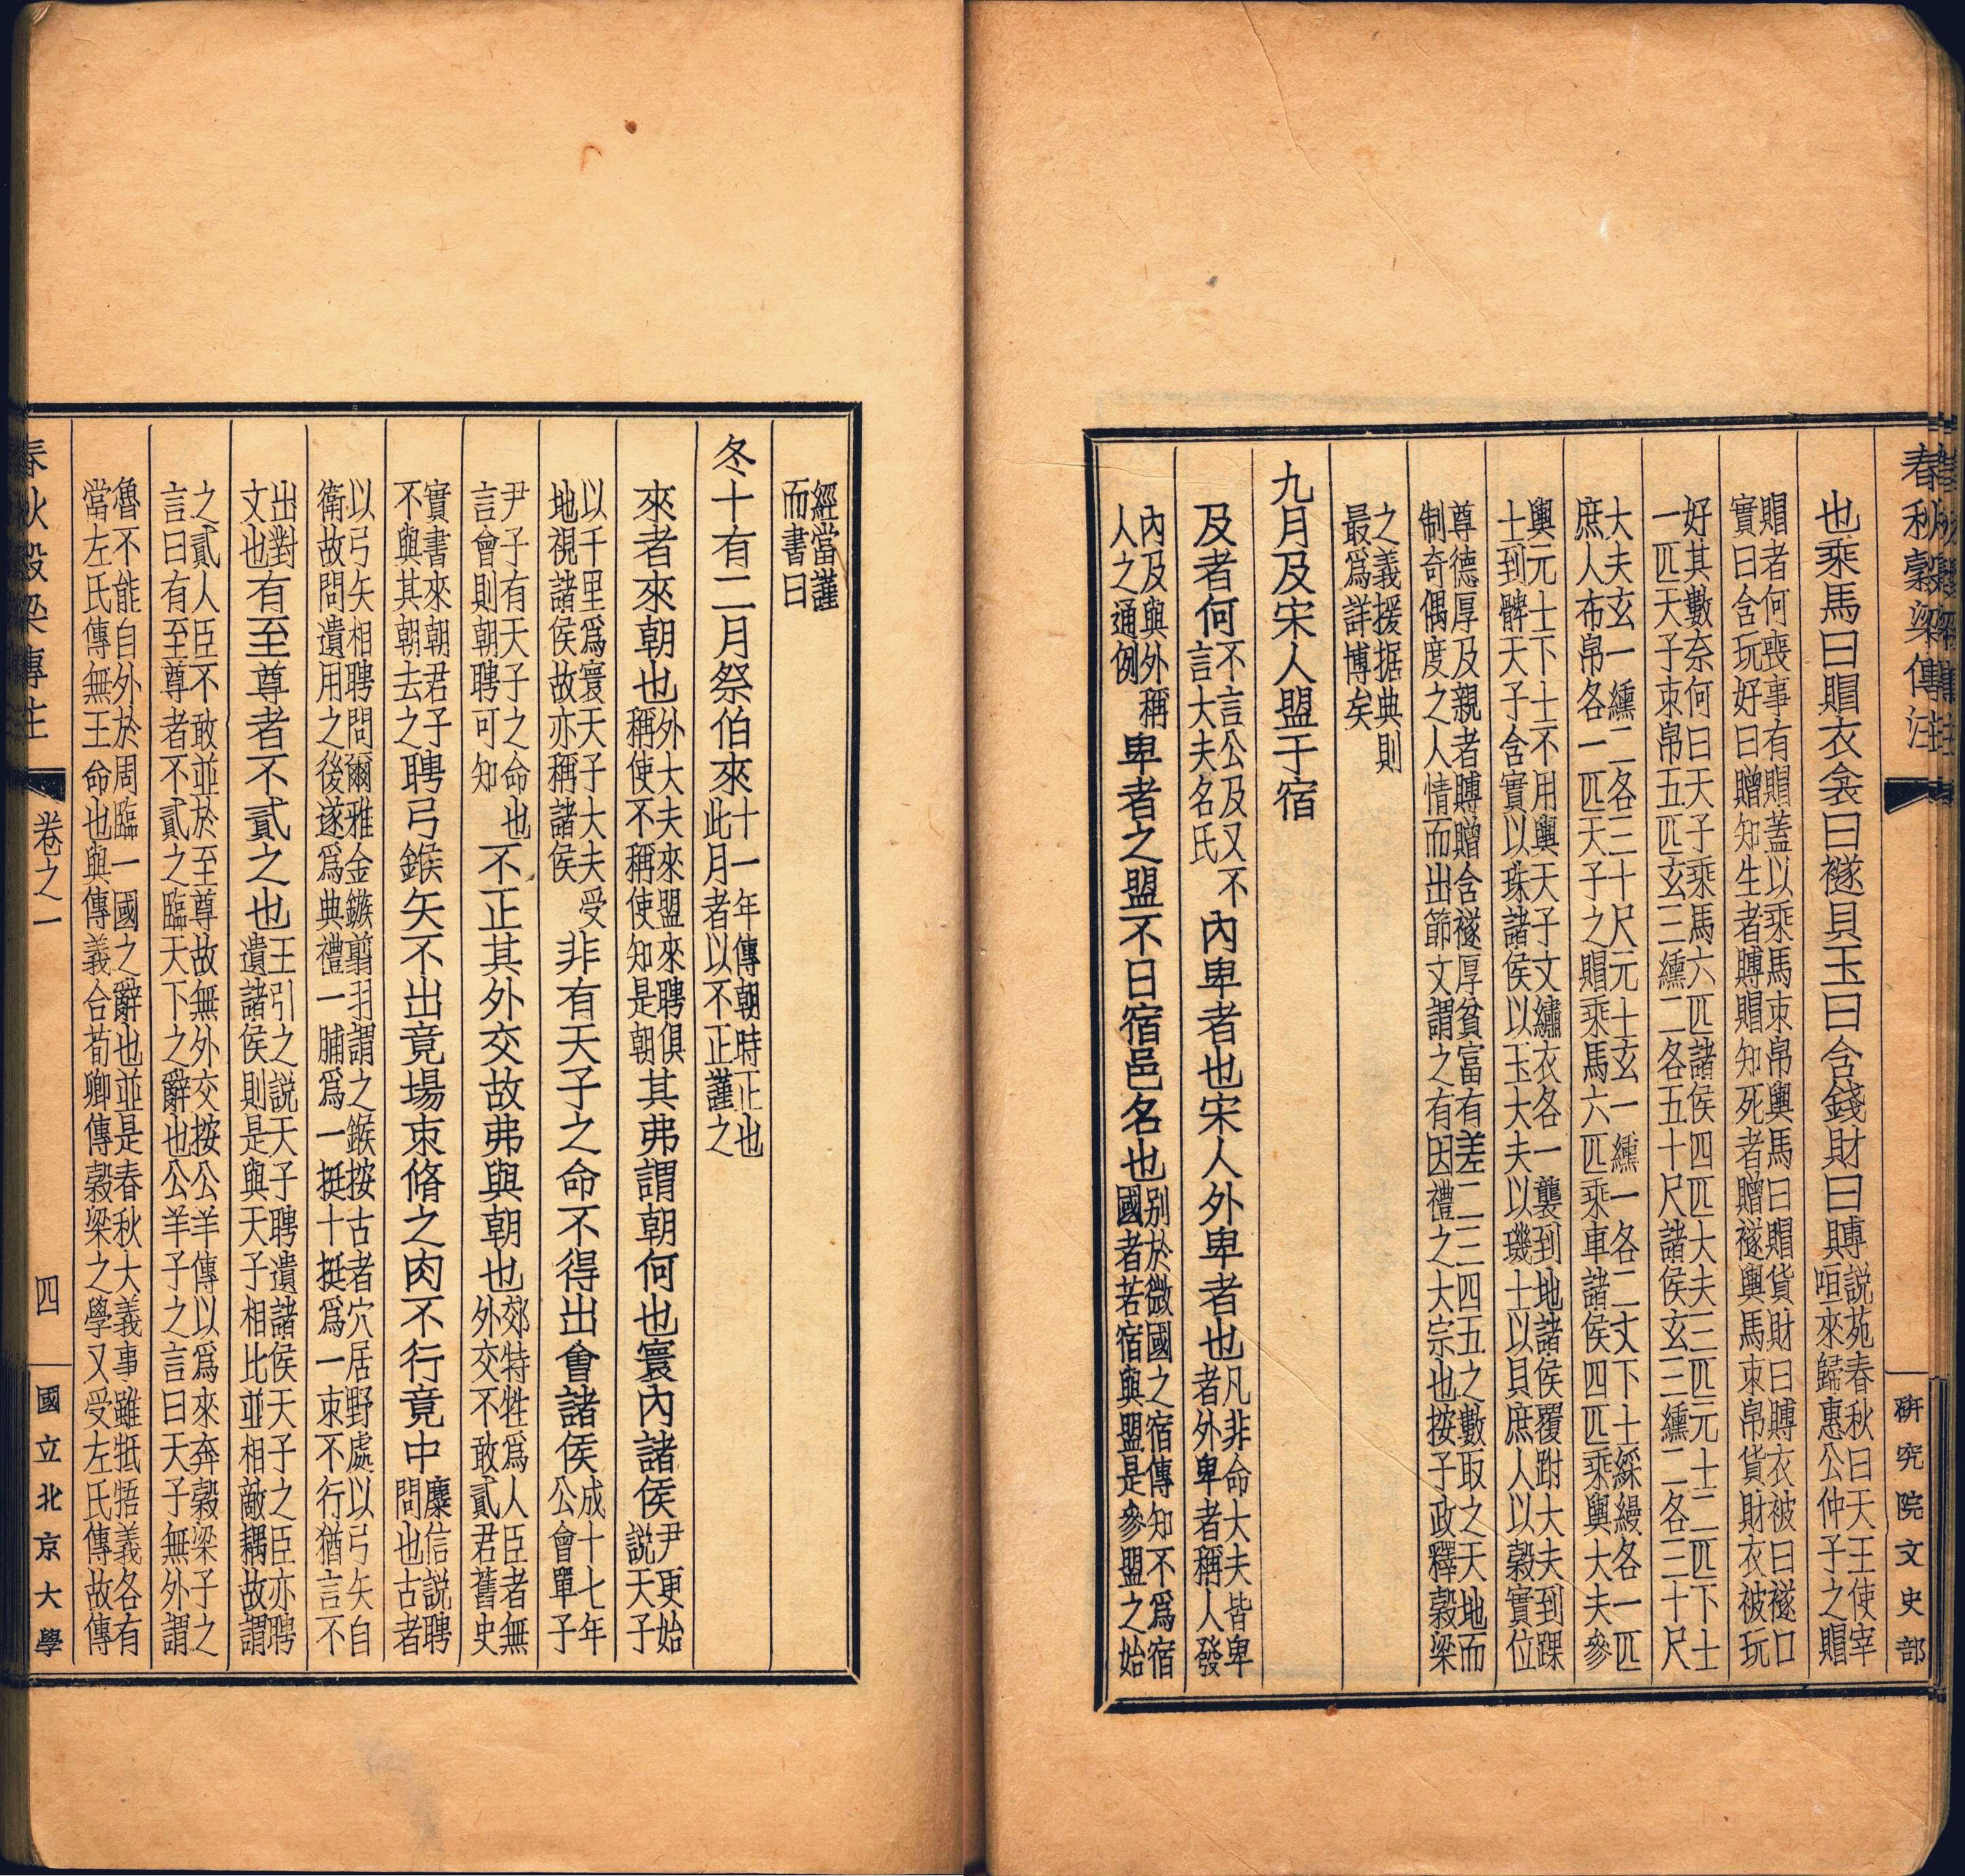 春秋穀梁傳注
研究院文史部
也乘馬曰賵衣衾曰襚貝玉曰含錢財曰賻說苑春秋曰天王使宰咺來歸惠公仲子之賵
賵者何喪事有賵蓋以乘馬束帛輿馬曰賵貨財曰賻衣被曰襚口
實曰含玩好曰贈知生者賻賵知死者贈襚輿馬束帛貨財衣被玩
好其數奈何曰天子乘馬六匹諸侯四匹大夫三匹元士二匹下士
一匹天子束帛五匹玄三纁二各五十尺諸侯玄三纁二各三十尺
大夫玄一纁二各三十尺元士玄一纁一各二丈下士綵縵各一匹
庶人布帛各一匹天子之賵乘馬六匹乘車諸侯四匹乘輿大夫參
輿元士下士不用輿天子文繡衣各一襲到地諸侯覆跗大夫到踝
士到髀天子含實以珠諸侯以玉大夫以璣士以貝庶人以穀實位
尊德厚及親者賻贈含襚厚貧富有差二三四五之數取之天地而
制奇偶度之人情而出節文謂之有因禮之大宗也按子政釋穀梁
之義援据典則
最爲詳博矣
九月及宋人盟于宿
及者何不言公及又不言大夫名氏內卑者也宋人外卑者也凡非命大夫皆卑者外卑者稱人發
內及與外稱人之通例卑者之盟不日宿邑名也别於微國之宿傳知不爲宿國者若宿與盟是參盟之始
經當謹
而書日
冬十有二月祭伯來十一年傳朝時正也此月者以不正謹之
來者來朝也外大夫來盟來聘俱稱使不稱使知是朝其弗謂朝何也寰內諸侯尹更始說天子
以千里爲寰天子大夫受地視諸侯故亦稱諸侯非有天子之命不得出會諸侯成十七年公會單子
尹子有天子之命也言會則朝聘可知不正其外交故弗與朝也郊特牲爲人臣者無外交不敢貳君舊史
實書來朝君子不與其朝去之聘弓鍭矢不出竟場束脩之肉不行竟中麋信說聘問也古者
以弓矢相聘問爾雅金鏃翦羽謂之鍭按古者穴居野處以弓矢自
衛故問遺用之後遂爲典禮一脯爲一挺十挺爲一束不行猶言不
出對文也有至尊者不貳之也王引之說天子聘遺諸侯天子之臣亦聘遺諸侯則是與天子相比並相敵耦故謂
之貳人臣不敢並於至尊故無外交按公羊傳以爲來奔穀梁子之
言曰有至尊者不貳之臨天下之辭也公羊子之言曰天子無外謂
魯不能自外於周臨一國之辭也並是春秋大義事雖牴牾義各有
當左氏傳無王命也與傳義合荀卿傳穀梁之學又受左氏傳故傳
春秋穀梁傳注
卷之一
四
國立北京大學